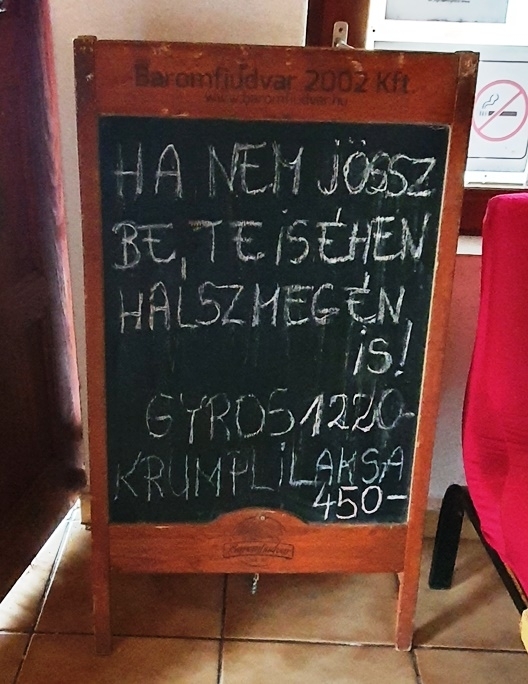 Baromfiudvar 2002 Kft.
www.baromfiudvar.hu
HA NEM JÖSSZ
BE, TE IS ÉHEN
HALSZ MEG ÉN
IS!
GYROS 1220-
KRUMPLILAKSA
450-